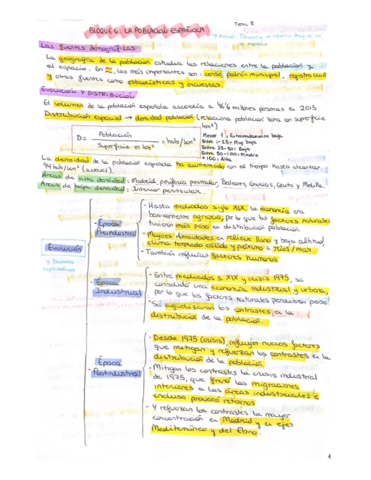 Tema 8
BLOQUE 6: LA POBLACIÓN ESPAÑOLA
Las fuentes demográficas
La geografía de la población estudia las relaciones entre la población y
el espacio. En las más importantes son: censo, padrón municipal, registro civil
y otras fuentes como estadísticas y encuestas.
Evolución y distribución
El volumen de la población española ascendía a 46'6 millones personas en 2015.
Distribución espacial → densidad población (relaciona población total en superficie
km²)
D = Población / Superficie en km² = hab/km²
Menor 1: Extremadamente baja
Entre 1-25: Muy baja
Entre 25-50: Baja
Entre 50-100: Media
+100: Alta
La densidad de la población española ha aumentado con el tiempo hasta alcanzar
hab/km² (actual).
Áreas de alta densidad: Madrid, periferia peninsular, Baleares, Canarias, Ceuta y Melilla.
Áreas de baja densidad: Interior peninsular.
Evolución
y factores
explicativos
- Época
Preindustrial
- Hasta mediados siglo XIX, la economía era
básicamente agraria, por lo que los factores naturales
tuvieron más peso en distribución población
- Mayores densidades en relieve llano y baja altitud,
clima templado cálido y próximo a ríos/mar.
- También influyeron factores humanos
- Época
Industrial
- Entre mediados s. XIX y crisis 1975, se
consolidó una economía industrial y urbana,
por lo que los factores naturales perdieron peso.
- Se agudizaron los contrastes en la
distribución de la población.
- Época
Postindustrial
- Desde 1975 (crisis), influyen nuevos factores
que mitigan y refuerzan los contrastes en la
distribución de la población.
- Mitigan los contrastes la crisis industrial
de 1975, que frenó las migraciones
interiores a las áreas industriales e
incluso provocó retornos
- Y refuerzan los contrastes la mayor
concentración en Madrid y el eje
Mediterráneo y del Ebro.
1